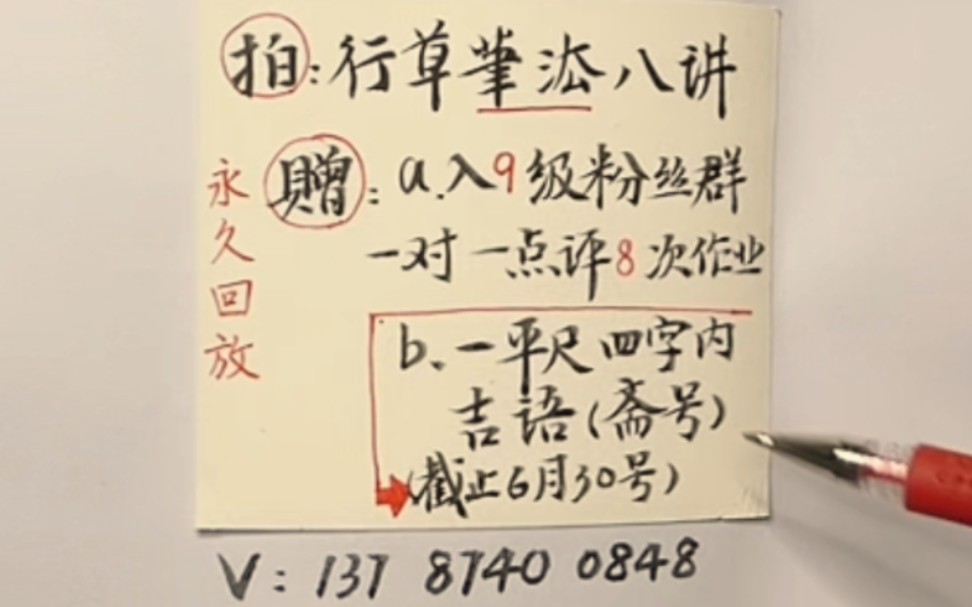 拍:行草笔法八讲
永久回放
赠:a.入9级粉丝群
一对一点评8次作业
b、一平尺四字内
吉语(斋号)
(截止6月30号)
V:137 8740 0848